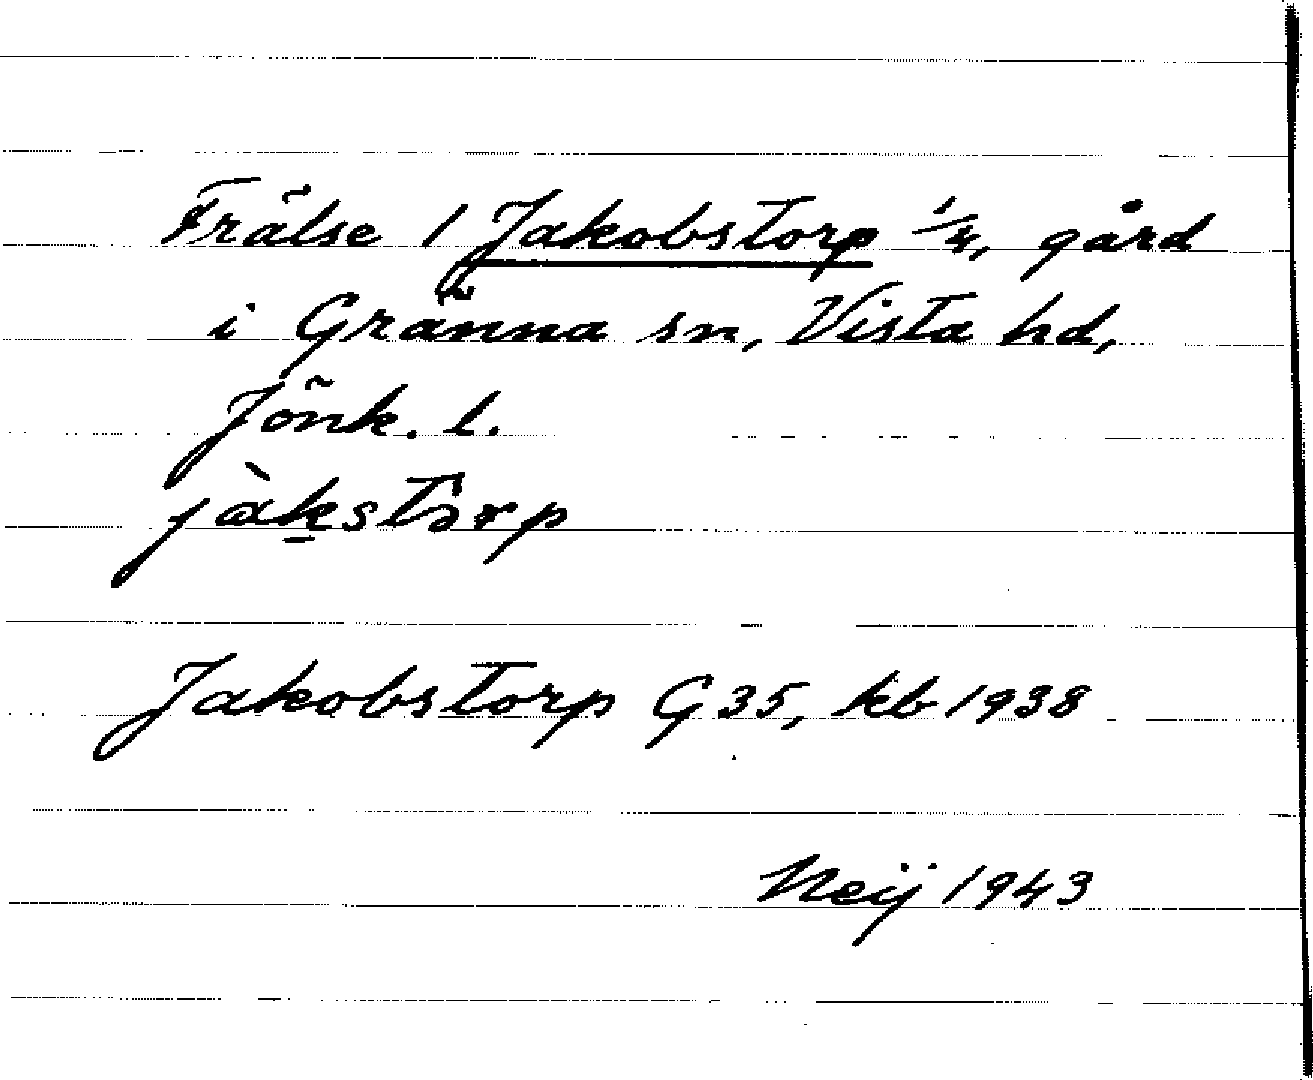 Frälse 1 Jakobstorp 1/4, gård
i Gränna sn, Vista hd,
Jönk. l.
jàkstårp
Jakobstorp G 35, kb 1938
Neij 1943